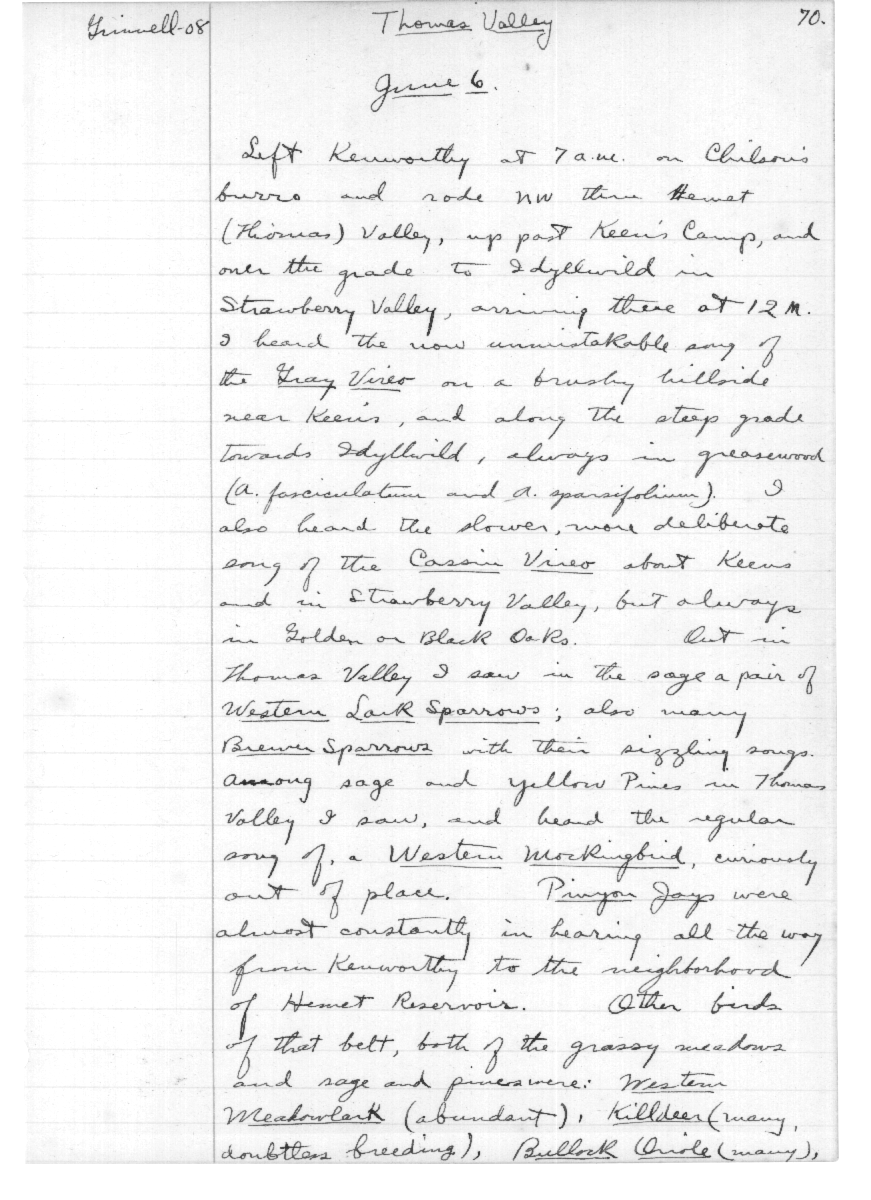 Grinnell-08
Thomas Valley
70.
June 6.
Left Kenworthy at 7 a.m. on Chilson's
burro and rode NW thru Hemet
(Thomas) Valley, up past Keen's Camp, and
over the grade to Idyllwild in
Strawberry Valley, arriving there at 12 M.
I heard the now unmistakable song of
the Gray Vireo on a brushy hillside
near Keen's, and along the steep grade
towards Idyllwild, always in greasewood
(A. fasciculatum and A. sparsifolium). I
also heard the slower, more deliberate
song of the Cassin Vireo about Keens
and in Strawberry Valley, but always
in Golden or Black Oaks. Out in
Thomas Valley I saw in the sage a pair of
Western Lark Sparrows; also many
Brewer Sparrows with their sizzling songs.
Among sage and Yellow Pines in Thomas
Valley I saw, and heard the regular
song of, a Western Mockingbird, curiously
out of place. Pinyon Jays were
almost constantly in hearing all the way
from Kenworthy to the neighborhood
of Hemet Reservoir. Other birds
of that belt, both of the grassy meadows
and sage and pines were: Western
Meadowlark (abundant), Killdeer (many,
doubtless breeding), Bullock Oriole (many),